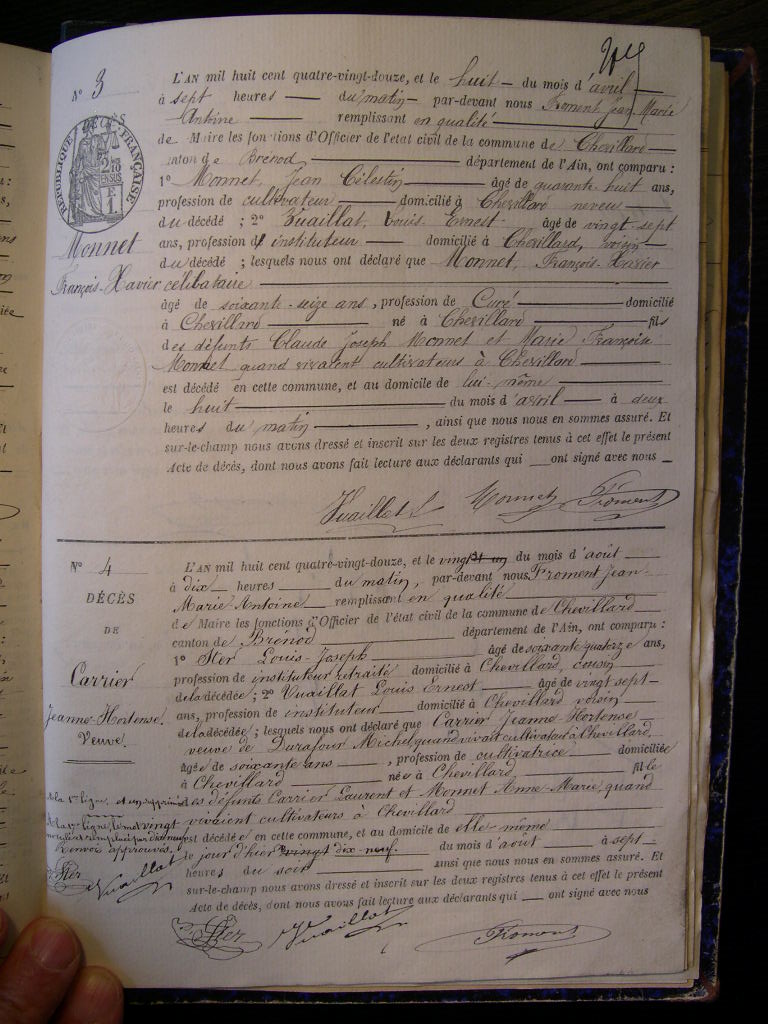 N° 3
DÉCÈS
RÉPUBLIQUE FRANÇAISE
Monnet
François-Xavier célibataire
L'AN mil huit cent quatre-vingt-douze, et le huit du mois d'avril
à sept heures du matin par-devant nous Froment Jean Marie
Antoine remplissant en qualité
de Maire les fonctions d'Officier de l'état civil de la commune de Chevillard
canton de Brénod département de l'Ain, ont comparu :
1° Monnet, Jean Célestin âgé de quarante huit ans,
profession de cultivateur domicilié à Chevillard neveu
du décédé ; 2° Vuaillat, Louis Ernest âgé de vingt-sept
ans, profession d'instituteur domicilié à Chevillard, voisin
du décédé ; lesquels nous ont déclaré que Monnet, François-Xavier
âgé de soixante-seize ans, profession de Curé domicilié
à Chevillard né à Chevillard fils
des défunts Claude Joseph Monnet et Marie Françoise
Monnet quand vivaient cultivateurs à Chevillard
est décédé en cette commune, et au domicile de lui-même
le huit du mois d'avril à deux
heures du matin, ainsi que nous nous en sommes assuré. Et
sur-le-champ nous avons dressé et inscrit sur les deux registres tenus à cet effet le présent
Acte de décès, dont nous avons fait lecture aux déclarants qui ont signé avec nous
Vuaillat L Monnet Froment
N° 4
DÉCÈS
DE
Carrier
Jeanne-Hortense
Veuve.
L'AN mil huit cent quatre-vingt-douze, et le vingt et un du mois d'août
à dix heures du matin, par-devant nous Froment Jean-
Marie-Antoine remplissant en qualité
de Maire les fonctions d'Officier de l'état civil de la commune de Chevillard
canton de Brénod département de l'Ain, ont comparu :
1° Ster Louis-Joseph âgé de soixante quatorze ans,
profession de instituteur retraité domicilié à Chevillard, cousin
de la décédée ; 2° Vuaillat Louis Ernest âgé de vingt sept
ans, profession de instituteur domicilié à Chevillard voisin
de la décédée ; lesquels nous ont déclaré que Carrier Jeanne-Hortense
veuve de Durafour Michel quand vivait cultivateur à Chevillard
âgée de soixante ans, profession de cultivatrice domiciliée
à Chevillard née à Chevillard fille
des défunts Carrier Laurent et Monnet Anne-Marie, quand
vivaient cultivateurs à Chevillard
est décédée en cette commune, et au domicile de elle-même
le jour d'hier vingt dix-neuf. du mois d'août à sept
heures du soir ainsi que nous nous en sommes assuré. Et
sur-le-champ nous avons dressé et inscrit sur les deux registres tenus à cet effet le présent
Acte de décès, dont nous avons fait lecture aux déclarants qui ont signé avec nous
A la 1re ligne, et un supprimé
A la 17e ligne, le mot vingt
Renvois approuvés.
Ster Vuaillat
Ster Vuaillat Froment